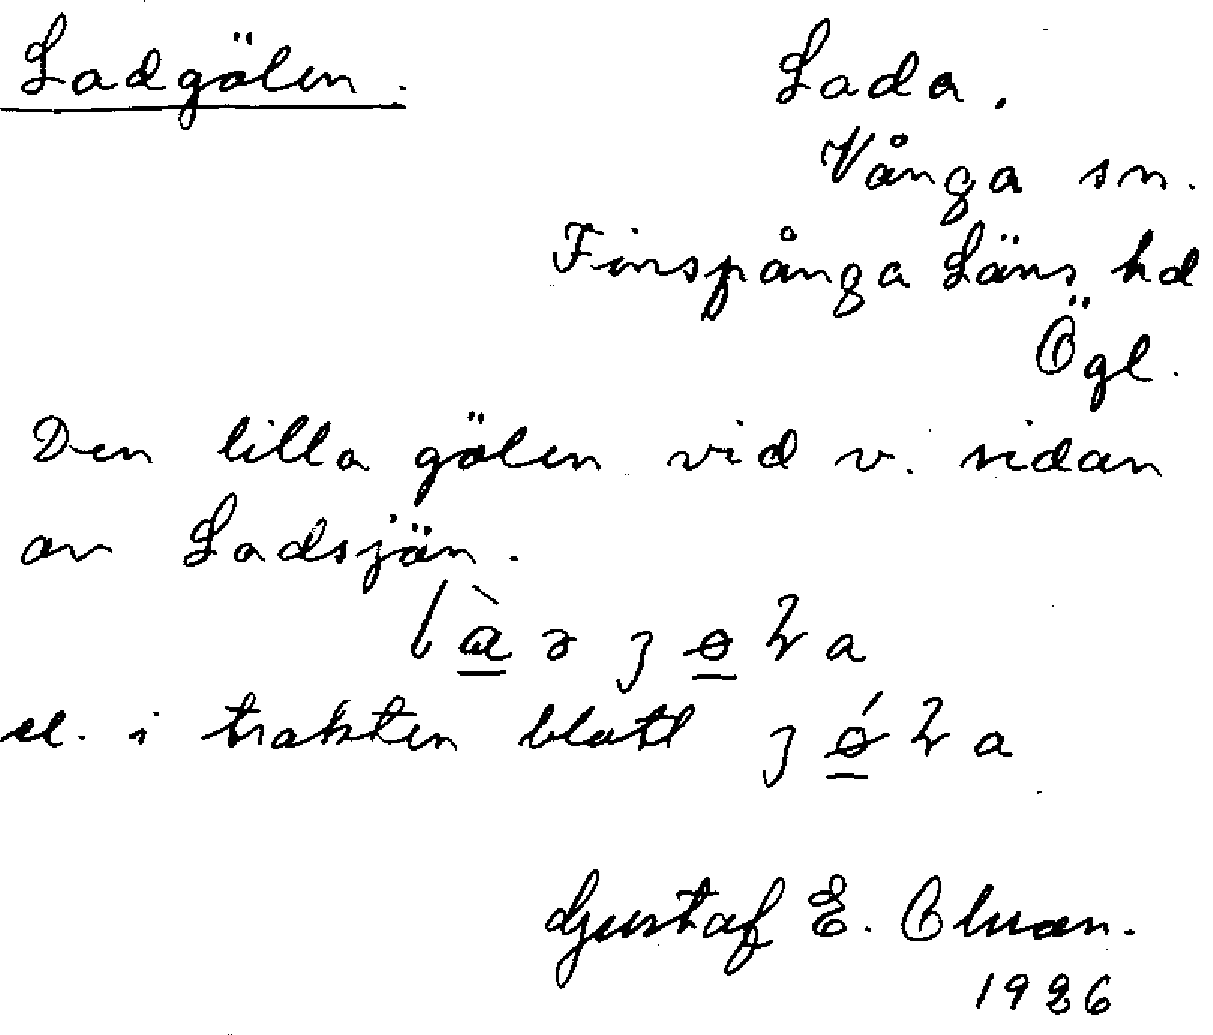 Ladgölen.
Lada.
Vånga sn.
Finspånga Läns hd
Ögl.
Den lilla gölen vid v. sidan
av Ladsjön.
el. i trakten blott
Gustaf E. Olsson.
1926